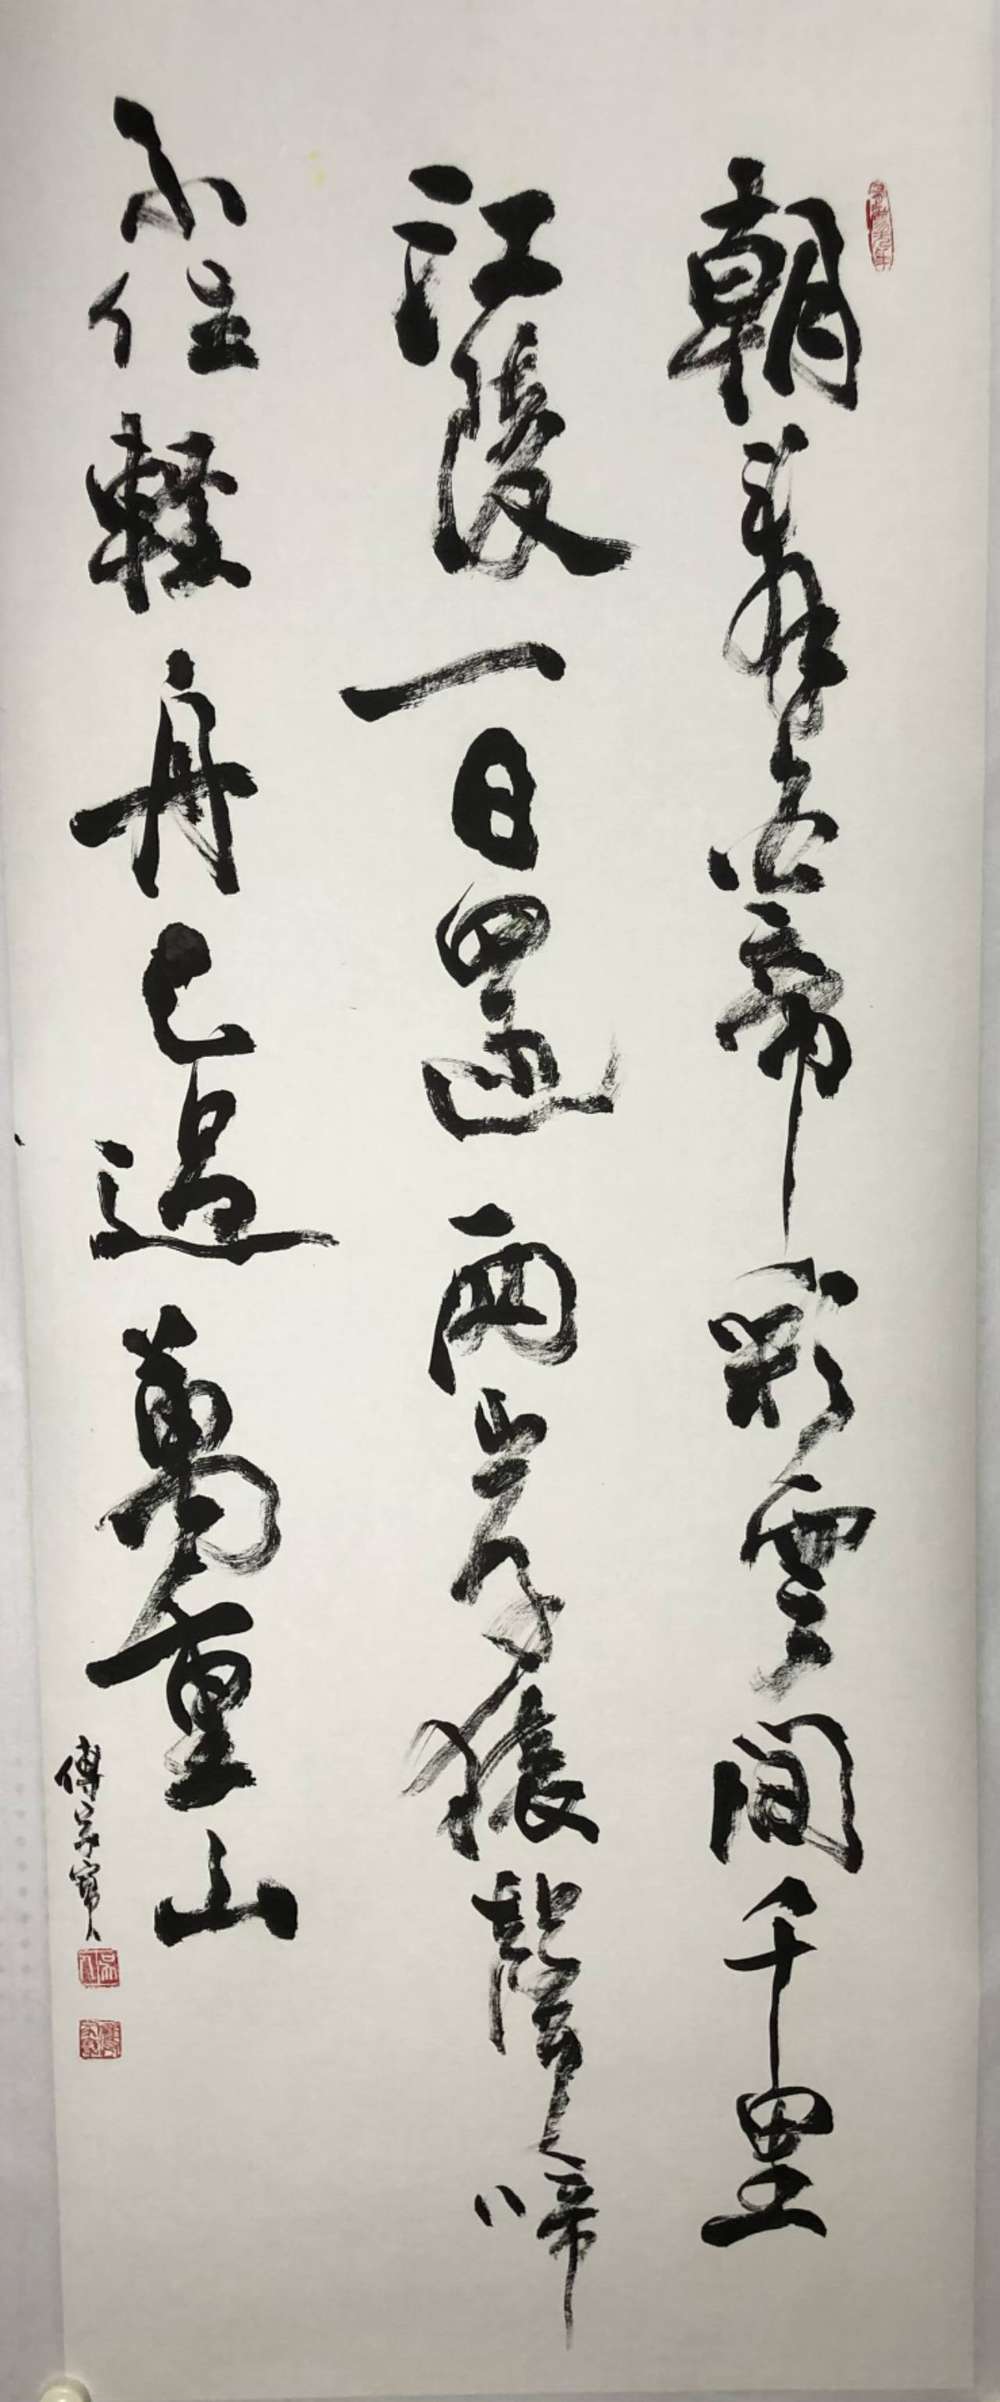 朝辭白帝彩雲間千里
江陵一日還兩岸猿聲啼
不住輕舟已過萬重山
傅家寶